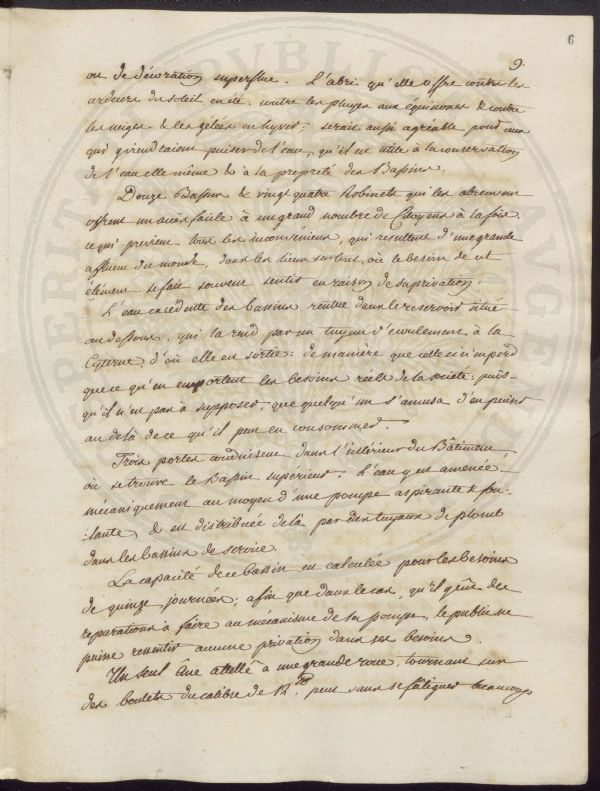 6
9.
ou de décoration superflue. L'abri qu'elle offre contre les
ardeurs du soleil en été; contre les pluyes aux équinoxes & contre
les neiges & les gelées en hyver; serait aussi agréable pour ceux
qui viendraient puiser de l'eau, qu'il est utile à la conservation
de l'eau elle même & à la propreté des Bassins.
Douze Bassins & vingt quatre Robinets qui les abreuvent
offrent un accès facile à un grand nombre de Citoyens à la fois
ce qui previent tous les inconvéniens, qui resultent d'une grande
affluence du monde, dans les lieux surtout, où le besoin de cet
élément se fait souvent sentir en raison de sa privation.
L'eau excédente des bassins rentre dans le reservoir situé
au dessous, qui la rend par un tuyau d'écoulement à la
Cyterne d'où elle est sortie: de manière que celle ci n'en perd
que ce qu'en emportent les besoins réels de la societé; puis-
qu'il n'est pas à supposer, que quelqu'un s'amusa d'en puiser
au delà de ce qu'il peut en consommer.
Trois portes conduisent dans l'intérieur du Bâtiment,
où se trouve le Bassin supérieur. L'eau y est amenée
mécaniquement au moyen d'une pompe aspirante & fou-
lante, & est distribuée de là par des tuyaux de plomb
dans les bassins de service.
La capacité de ce bassin est calculée pour les besoins
de quinze journées; afin que dans le cas, qu'il y eût des
reparations à faire au mécanisme de la pompe, le public ne
puisse ressentir aucune privation dans ses besoins.
Un seul Âne attellé à une grande roue, tournant sur
des boulets du calibre de 12. peut sans se fatiguer beaucoup